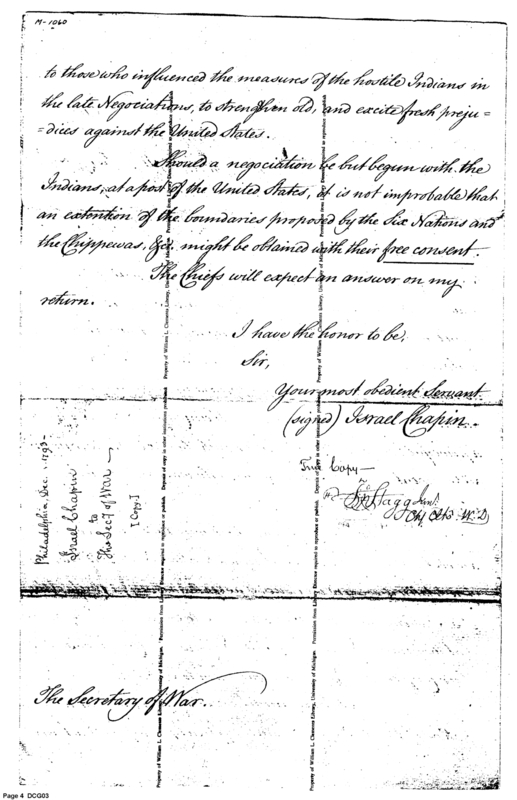 M-1060
to those who influenced the measures of the hostile Indians in
the late Negociations, to strengthen old, and excite fresh preju=
=dices against the United States.
Should a negociation be but begun with the
Indians, at a post of the United States, it is not improbable that
an extention of the boundaries proposed by the Six Nations and
the Chippewas, &c. might be obtained with their free consent.
The Chiefs will expect an answer on my
return.
I have the honor to be,
Sir,
Your most obedient Servant.
(signed) Israel Chapin.
True Copy—
Stagg Junr.
Ch Clk W.D
Philadelphia, Dec. 1793-
Israel Chapin
to
The Secy of War —
[Copy.]
The Secretary of War.
Property of William L. Clements Library, University of Michigan. Permission from Library Director required to reproduce or publish. Deposit of copy in other institutions prohibited.
Page 4 DCG03